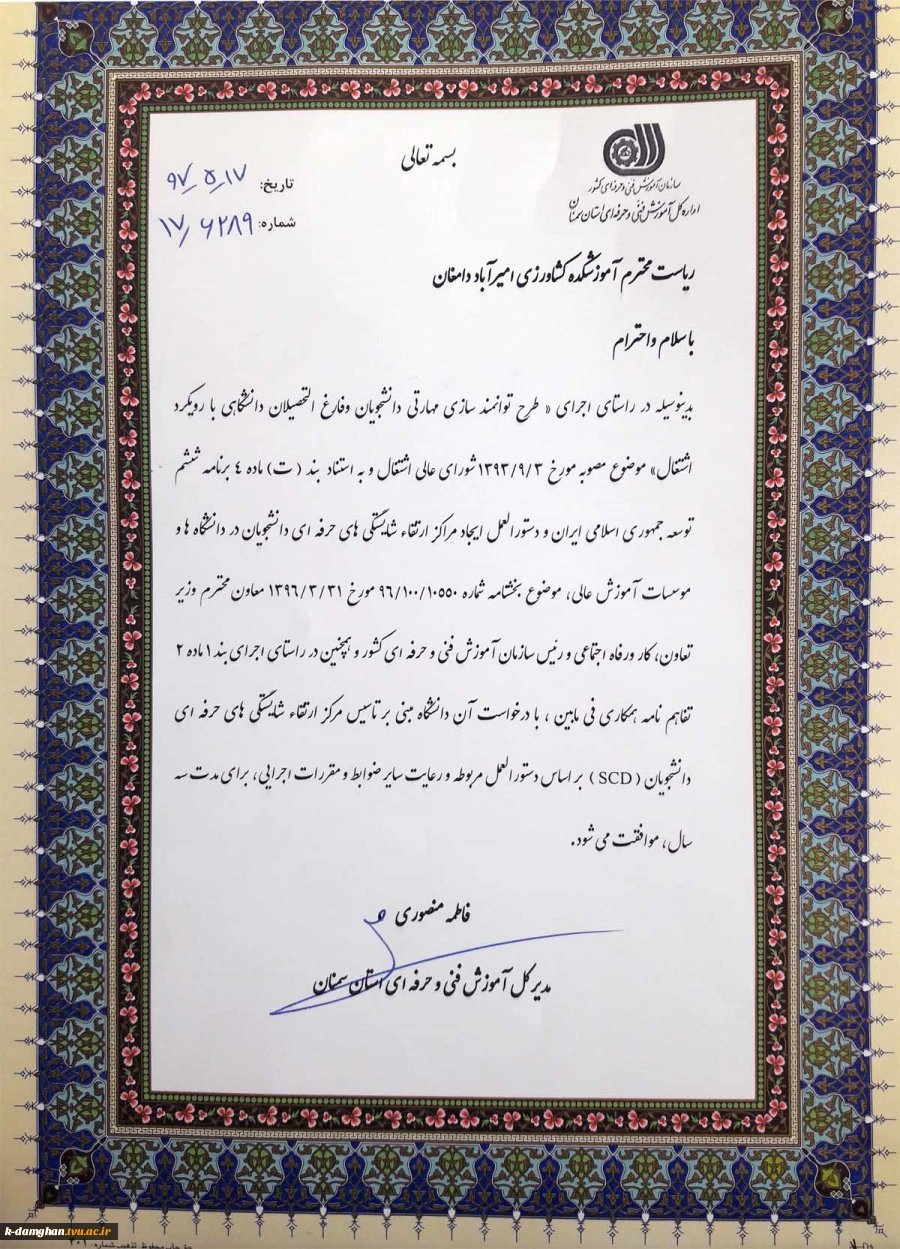 بسمه تعالی
سازمان آموزش فنی و حرفه ای کشور
اداره کل آموزش فنی و حرفه ای استان سمنان
تاریخ: ۹۷٫۵٫۱۷
شماره: ۱۷٫۶۲۸۹
ریاست محترم آموزشکده کشاورزی امیرآباد دامغان
باسلام واحترام
بدینوسیله در راستای اجرای « طرح توانمند سازی مهارتی دانشجویان وفارغ التحصیلان دانشگاهی با رویکرد
اشتغال» موضوع مصوبه مورخ ۱۳۹۳/۹/۳ شورای عالی اشتغال و به استناد بند ( ت ) ماده ٤ برنامه ششم
توسعه جمهوری اسلامی ایران و دستورالعمل ایجاد مراکز ارتقاء شایستگی های حرفه ای دانشجویان در دانشگاه ها و
موسسات آموزش عالی، موضوع بخشنامه شماره ۹۶/۱۰۰/۱۰۵۵۰ مورخ ۱۳۹۶/۳/۳۱ معاون محترم وزیر
تعاون، کار ورفاه اجتماعی و رئیس سازمان آموزش فنی و حرفه ای کشور و همچنین در راستای اجرای بند ۱ ماده ۲
تفاهم نامه همکاری فی مابین ، با درخواست آن دانشگاه مبنی بر تاسیس مرکز ارتقاء شایستگی های حرفه ای
دانشجویان ( SCD ) بر اساس دستورالعمل مربوطه و رعایت سایر ضوابط و مقررات اجرایی، برای مدت سه
سال، موافقت می شود.
فاطمه منصوری
مدیر کل آموزش فنی و حرفه ای استان سمنان
k-damghan.tvu.ac.ir